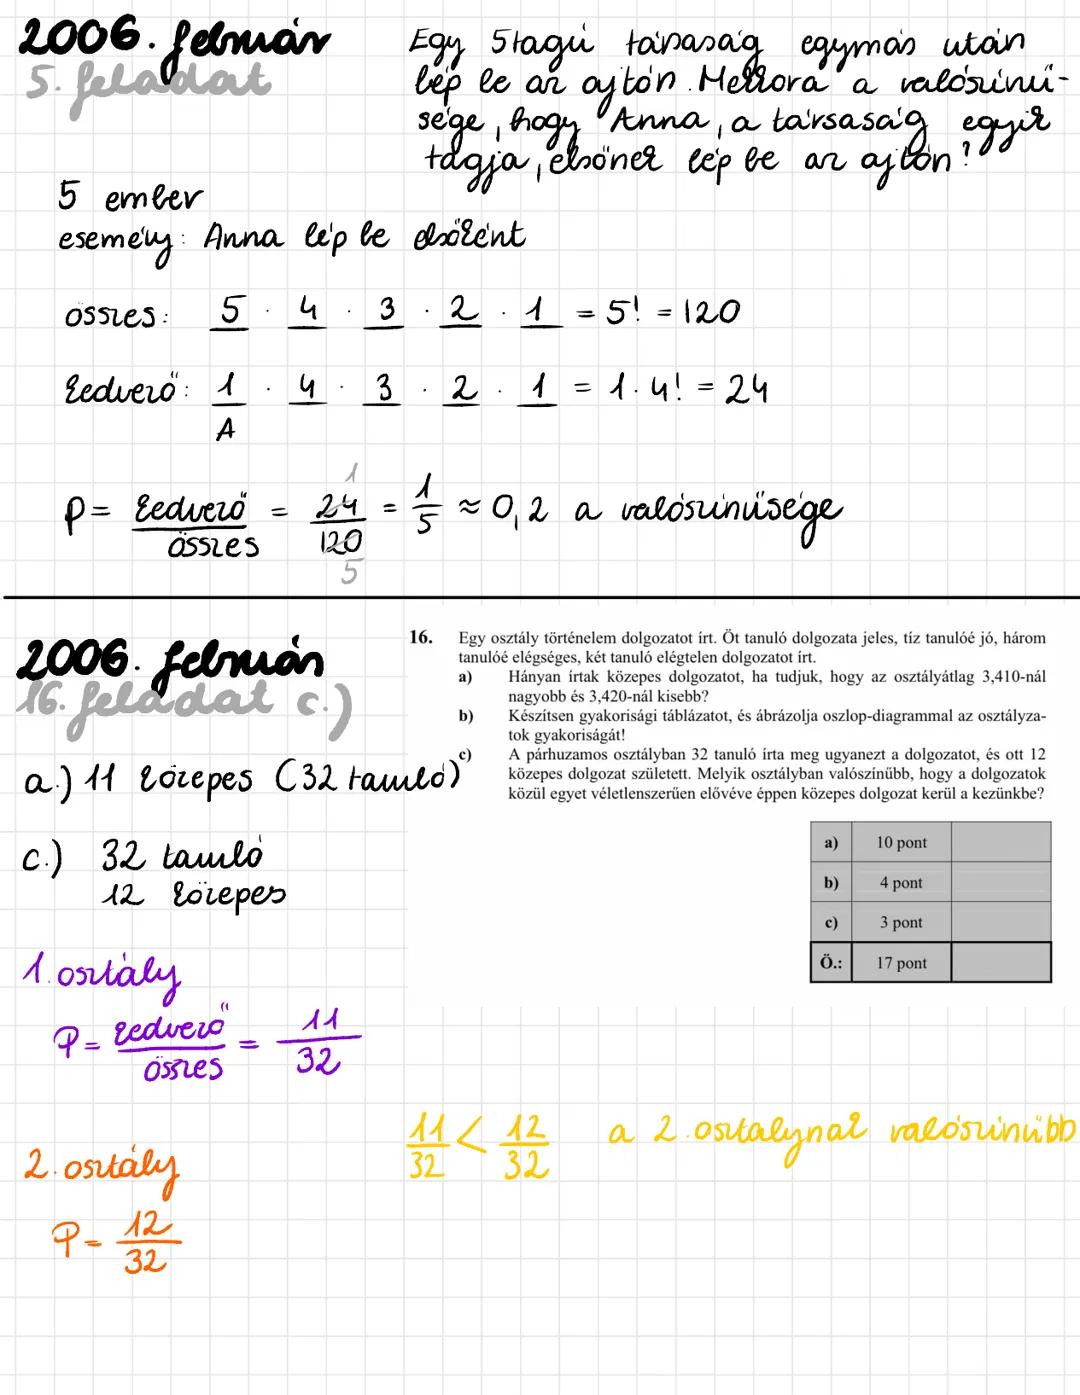 2006. február
5. feladat
Egy 5tagú társaság egymás után
lép be az ajtón. Mekkora a valószínű-
sége, hogy Anna, a társaság egyik
tagja, elsőnek lép be az ajtón?
5 ember
esemély: Anna lép be elsőként
összes: 5 · 4 · 3 · 2 · 1 = 5! = 120
kedvező: 1 · 4 · 3 · 2 · 1 = 1 · 4! = 24
A
P = kedvező / összes = 24 / 120 = 1 / 5 ≈ 0,2 a valószínűsége
1
5
2006. február
16. feladat c.)
16. Egy osztály történelem dolgozatot írt. Öt tanuló dolgozata jeles, tíz tanulóé jó, három
tanulóé elégséges, két tanuló elégtelen dolgozatot írt.
a) Hányan írtak közepes dolgozatot, ha tudjuk, hogy az osztályátlag 3,410-nál
nagyobb és 3,420-nál kisebb?
b) Készítsen gyakorisági táblázatot, és ábrázolja oszlop-diagrammal az osztályza-
tok gyakoriságát!
c) A párhuzamos osztályban 32 tanuló írta meg ugyanezt a dolgozatot, és ott 12
közepes dolgozat született. Melyik osztályban valószínűbb, hogy a dolgozatok
közül egyet véletlenszerűen elővéve éppen közepes dolgozat kerül a kezünkbe?
a) 10 pont
b) 4 pont
c) 3 pont
Ö.: 17 pont
a.) 11 közepes (32 tanuló)
c.) 32 tanuló
12 közepes
1. osztály
P = kedvező / összes = 11 / 32
2. osztály
P = 12 / 32
11 / 32 < 12 / 32 a 2. osztálynál valószínűbb